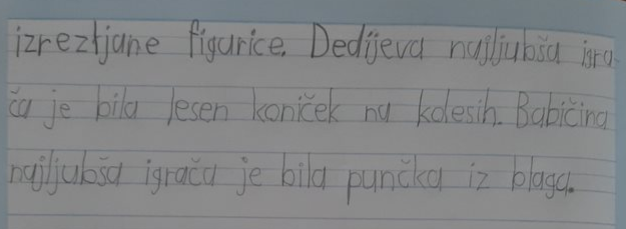 izrezljane figurice. Dedijeva najljubša igra-
ča je bila lesen koniček na kolesih. Babičina
najljubša igrača je bila punčka iz blaga.